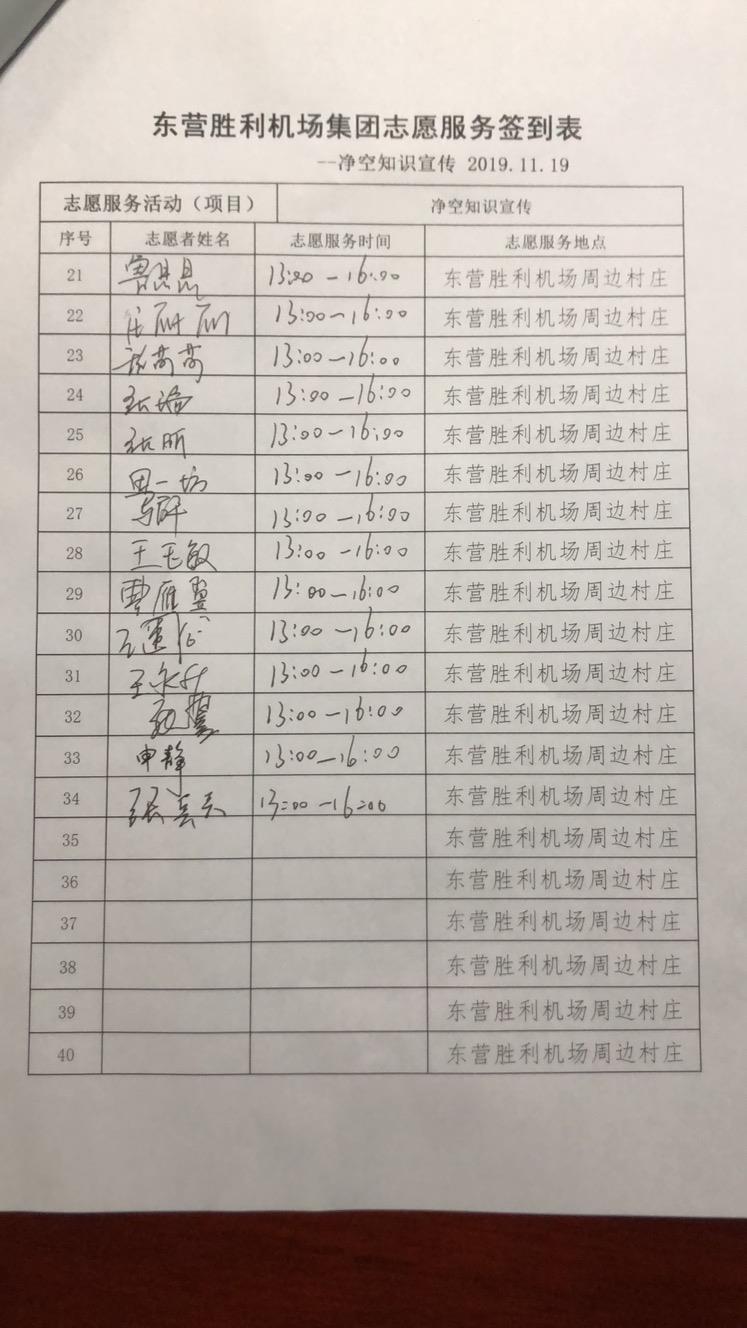 东营胜利机场集团志愿服务签到表
--净空知识宣传 2019.11.19
志愿服务活动（项目） 净空知识宣传
序号 志愿者姓名 志愿服务时间 志愿服务地点
21 13:00-16:00 东营胜利机场周边村庄
22 13:00-16:00 东营胜利机场周边村庄
23 13:00-16:00 东营胜利机场周边村庄
24 13:00-16:00 东营胜利机场周边村庄
25 张昕 13:00-16:00 东营胜利机场周边村庄
26 13:00-16:00 东营胜利机场周边村庄
27 13:00-16:00 东营胜利机场周边村庄
28 王玉敏 13:00-16:00 东营胜利机场周边村庄
29 曹雁翼 13:00-16:00 东营胜利机场周边村庄
30 13:00-16:00 东营胜利机场周边村庄
31 王永升 13:00-16:00 东营胜利机场周边村庄
32 13:00-16:00 东营胜利机场周边村庄
33 申静 13:00-16:00 东营胜利机场周边村庄
34 13:00-16:00 东营胜利机场周边村庄
35 东营胜利机场周边村庄
36 东营胜利机场周边村庄
37 东营胜利机场周边村庄
38 东营胜利机场周边村庄
39 东营胜利机场周边村庄
40 东营胜利机场周边村庄